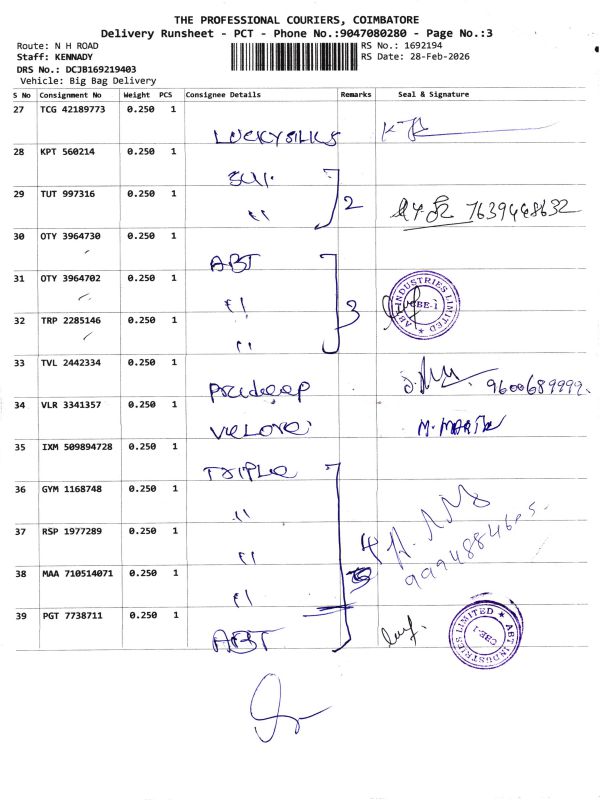 THE PROFESSIONAL COURIERS, COIMBATORE
Delivery Runsheet - PCT - Phone No.:9047080280 - Page No.:3
Route: N H ROAD
RS No.: 1692194
Staff: KENNADY
RS Date: 28-Feb-2026
DRS No.: DCJB169219403
Vehicle: Big Bag Delivery
S No Consignment No Weight PCS Consignee Details Remarks Seal & Signature
27 TCG 42189773 0.250 1 LUCKYSILKS
28 KPT 560214 0.250 1
29 TUT 997316 0.250 1 " 2 7639448632
30 OTY 3964730 0.250 1 ABT
31 OTY 3964702 0.250 1 " 3 ABT INDUSTRIES LIMITED CBE-1
32 TRP 2285146 0.250 1 "
33 TVL 2442334 0.250 1 Pradeep 9600689992
34 VLR 3341357 0.250 1
35 IXM 509894728 0.250 1 TRIPLE
36 GYM 1168748 0.250 1 "
37 RSP 1977289 0.250 1 " 4 9994884605
38 MAA 710514071 0.250 1 "
39 PGT 7738711 0.250 1 ABT ABT INDUSTRIES LIMITED CBE-1